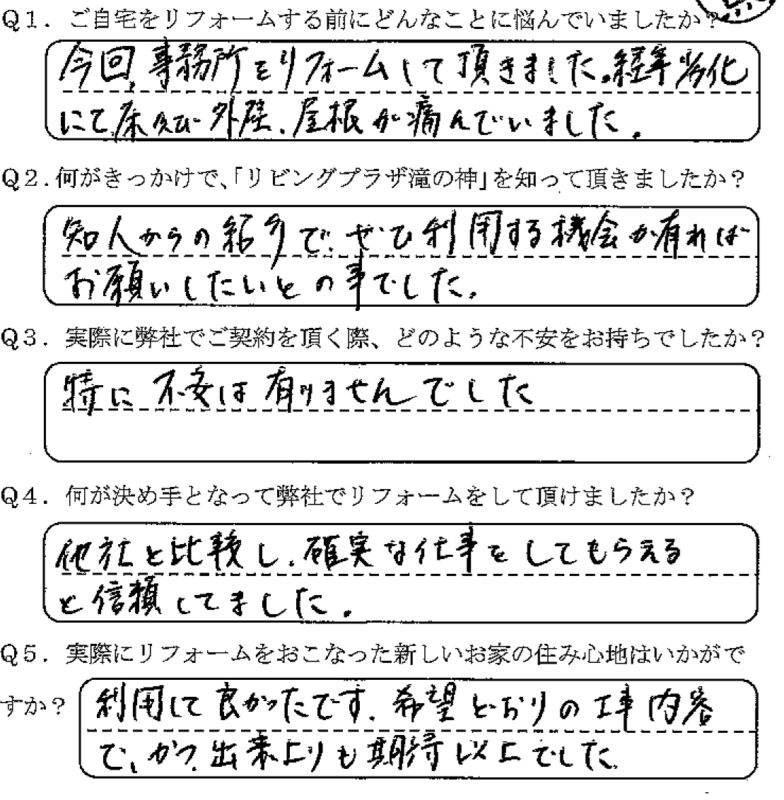 Q1．ご自宅をリフォームする前にどんなことに悩んでいましたか？
今回、事務所をリフォームして頂きました。経年劣化
にて床及び外壁、屋根が痛んでいました。
Q2．何がきっかけで、「リビングプラザ滝の神」を知って頂きましたか？
知人からの紹介で、ぜひ利用する機会が有れば
お願いしたいとの事でした。
Q3．実際に弊社でご契約を頂く際、どのような不安をお持ちでしたか？
特に不安は有りませんでした
Q4．何が決め手となって弊社でリフォームをして頂けましたか？
他社と比較し、確実な仕事をしてもらえる
と信頼してました。
Q5．実際にリフォームをおこなった新しいお家の住み心地はいかがで
すか？ 利用して良かったです。希望どおりの工事内容
で、かつ出来上りも期待以上でした。